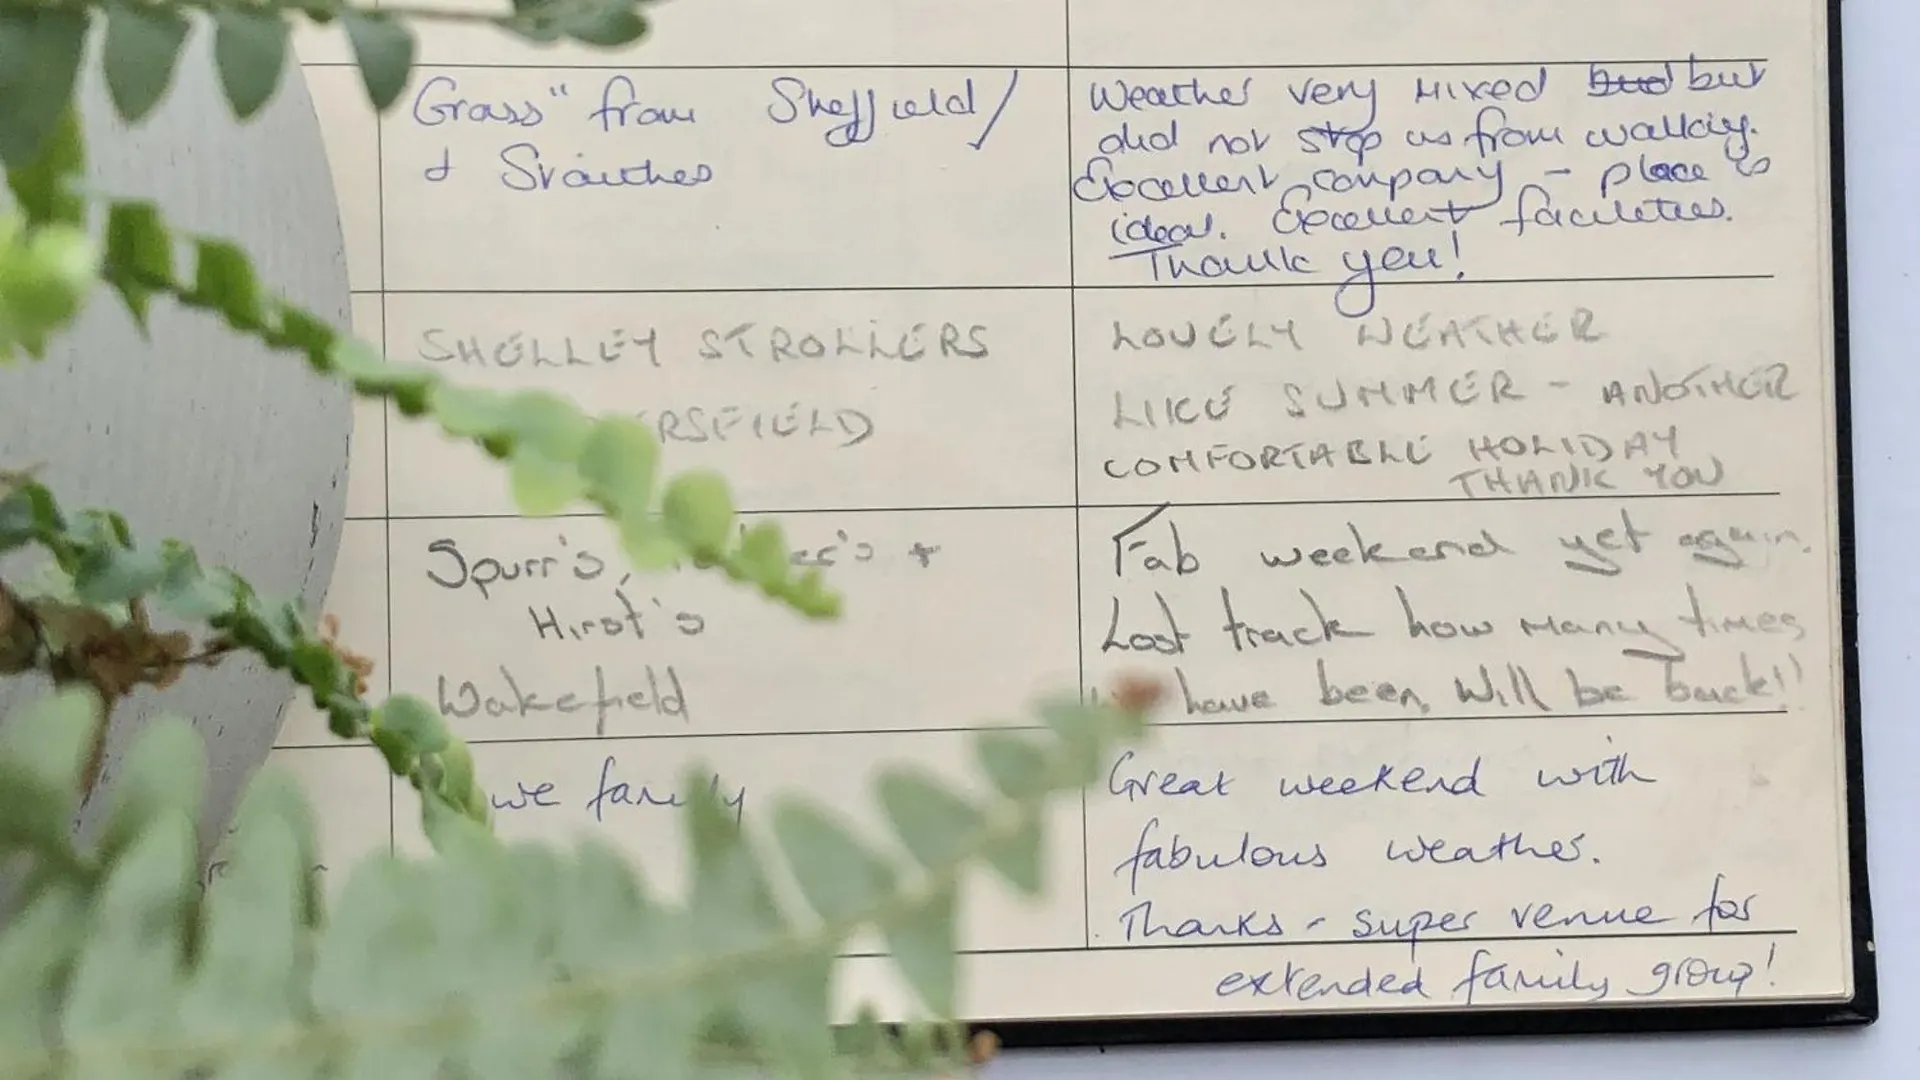 Grass" from Sheffield/
&
Weather very mixed but
did not stop us from walking.
Excellent company - place is
ideal. Excellent facilities.
Thank you!
SHELLEY STROLLERS
LOVELY WEATHER
LIKE SUMMER - ANOTHER
COMFORTABLE HOLIDAY
THANK YOU
Spurr's, +
Hirst's
Wakefield
Fab weekend yet again.
Lost track how many times
have been. Will be back!!
family
Great weekend with
fabulous weather.
Thanks - super venue for
extended family group!